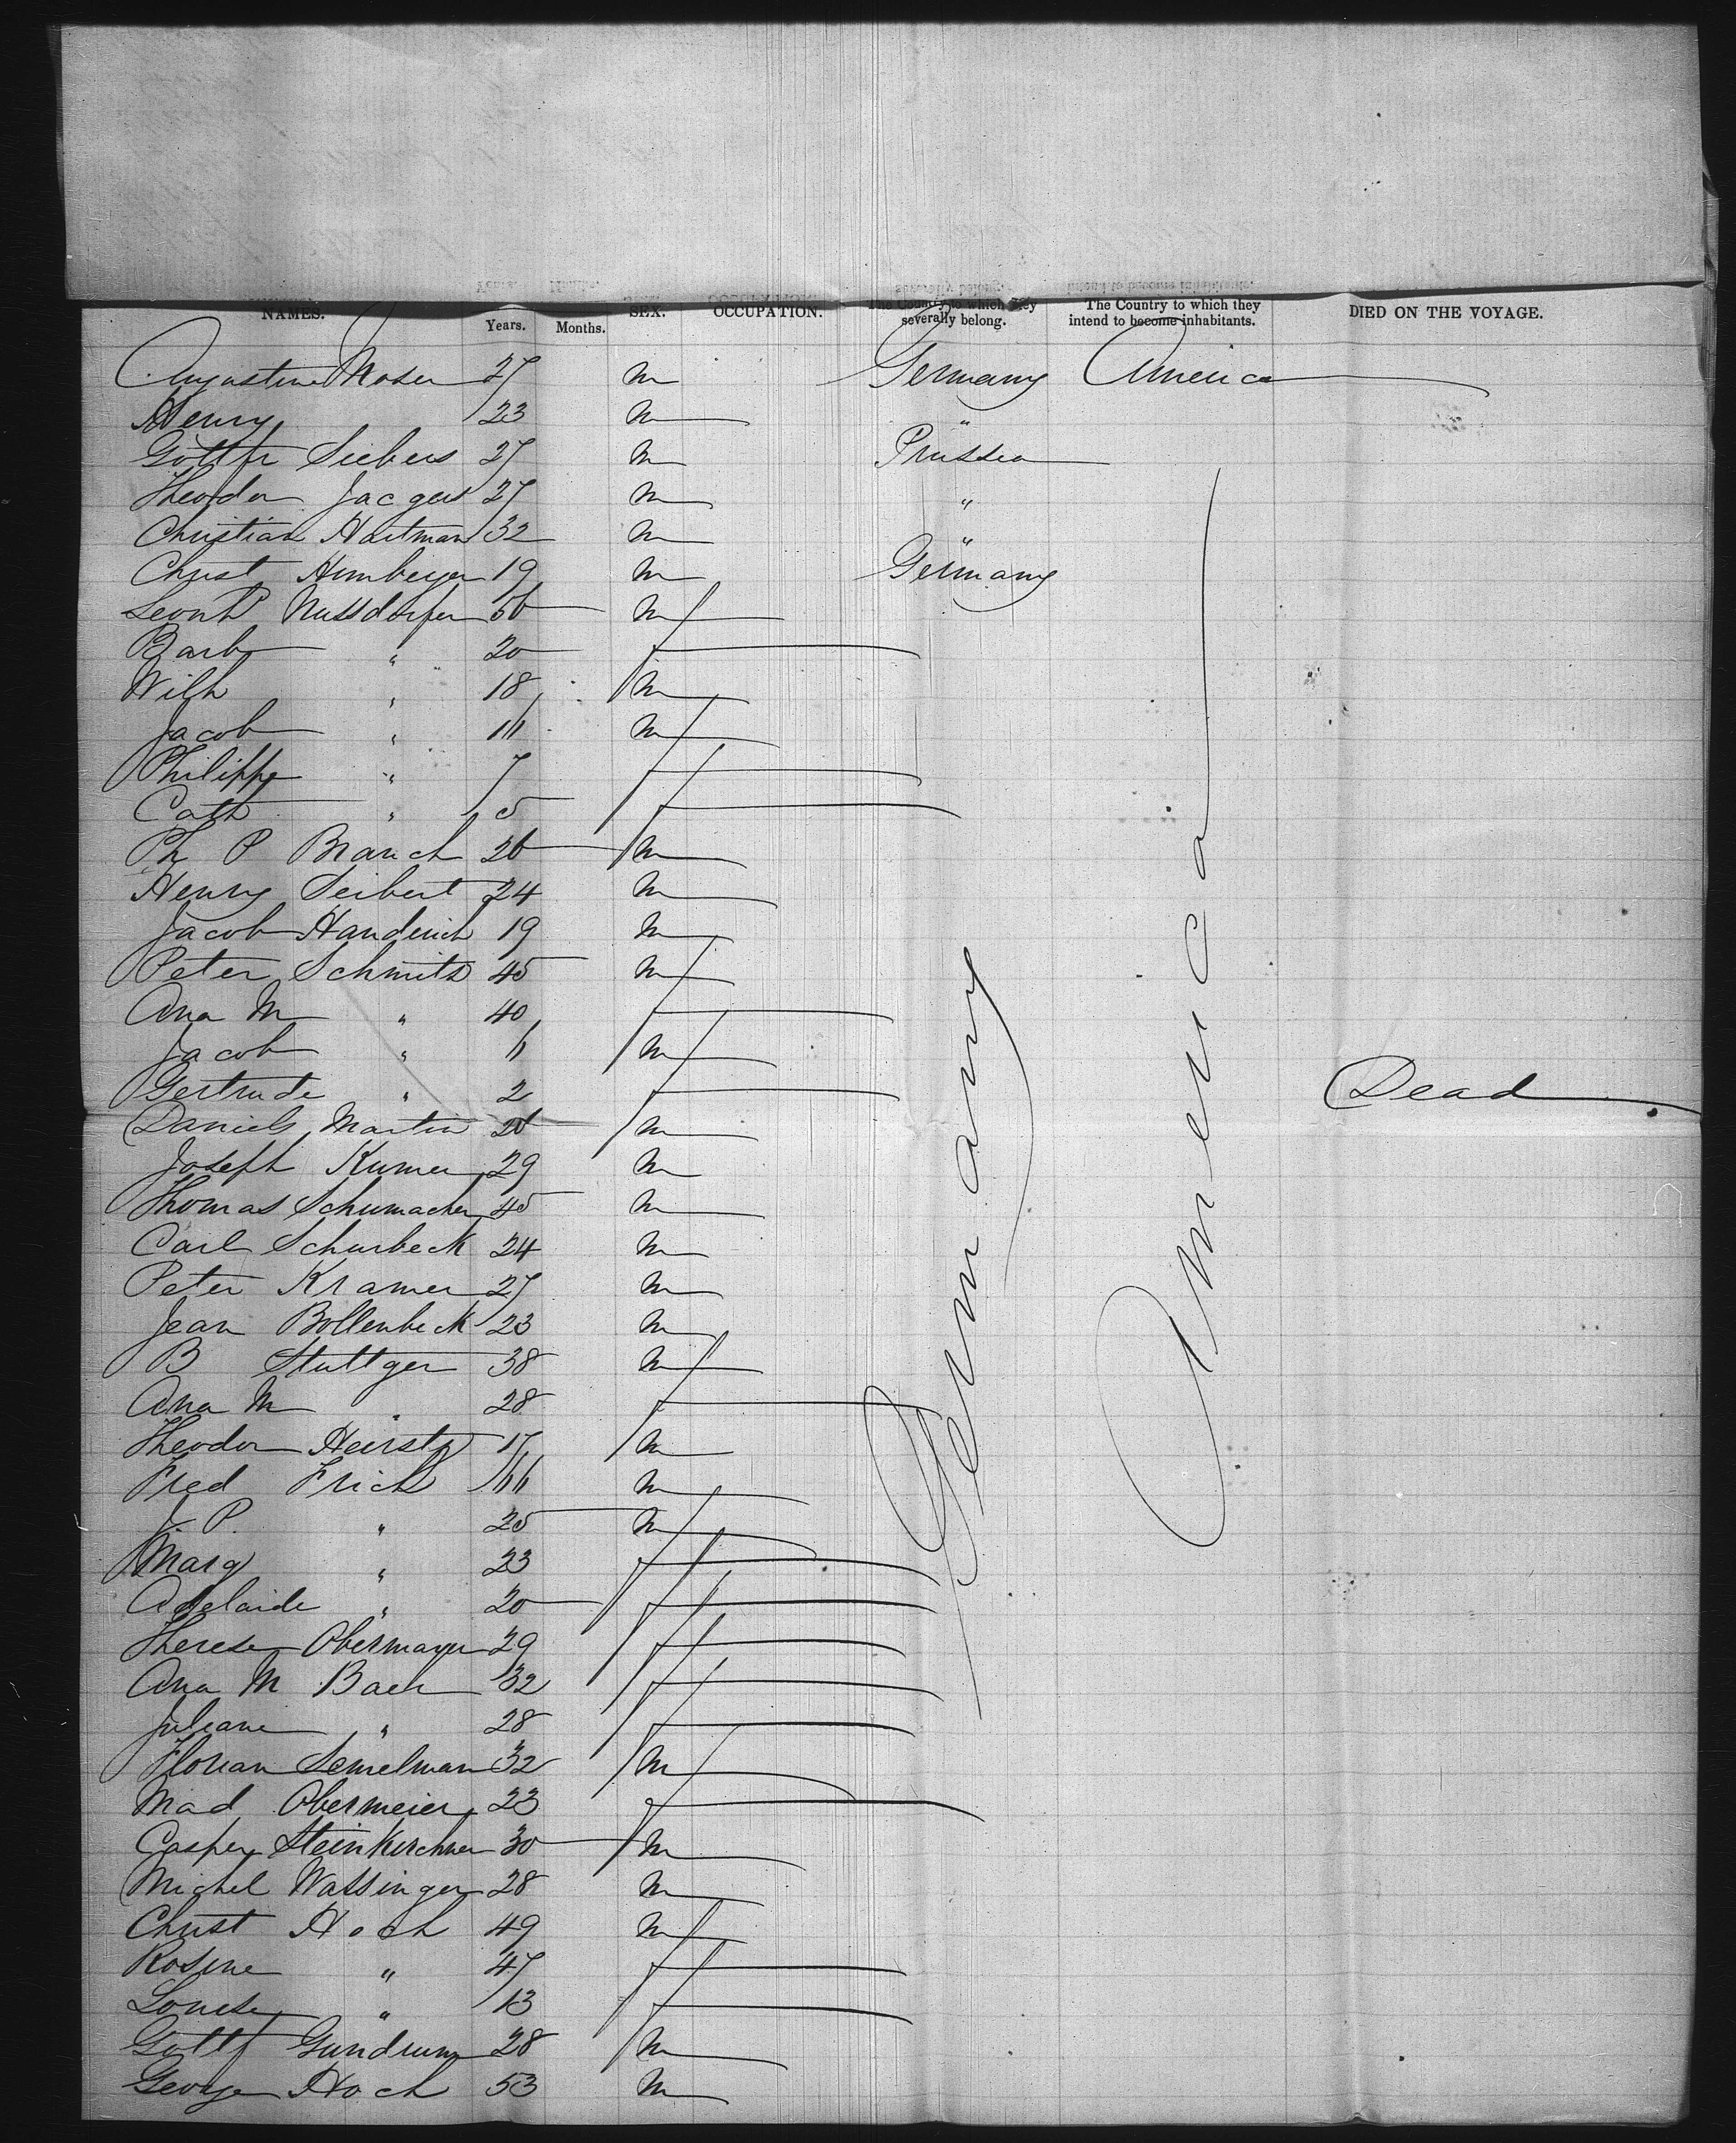 NAMES. Years. Months. SEX. OCCUPATION. The Country to which they severally belong. The Country to which they intend to become inhabitants. DIED ON THE VOYAGE.
Augustine Moser 27 m Germany America
Henry 23 m "
Gottfr Siebers 27 m Prussia
Theodor Jacgers 27 m "
Christian Hartman 32 m "
Christ Himberger 19 m Germany
Leonh P Nussdorfer m
Barb " 20 f
Wilh " 18 m
Jacob " 11 m
Philippe " 7 f
Cath " 5 f
Ph P Branch 26 m
Henry Seibert 24 m
Jacob Handerich 19 m
Peter Schmitz 45 m
Ana M " 40 f
Jacob " m
Gertrude " 2 f Dead
Daniel Martin m
Joseph Kumer 29 m
Thomas Schumacher 45 m
Carl Schurbeck 24 m
Peter Kramer 27 m
Jean Bollenbeck 23 m
B Stuttger 38 m
Ana M " 28 f
Theodor 17 m
Fred Frich m
J. P. " 25 m
Marg " 23 f
Adelaide " 20 f
Therese Obermayer 29 f
Ana M Baer 32 f
Juliane " 28 f
Florian Semelman 32 m
Mad Obermeier 23 f
Casper Steinkirchner 30 m
Michel Wassinger 28 m
Christ Hoch 49 m
Rosine " 47 f
Louise " 13 f
Gottf Gundrum 28 m
George Hoch 53 m
Germany
America